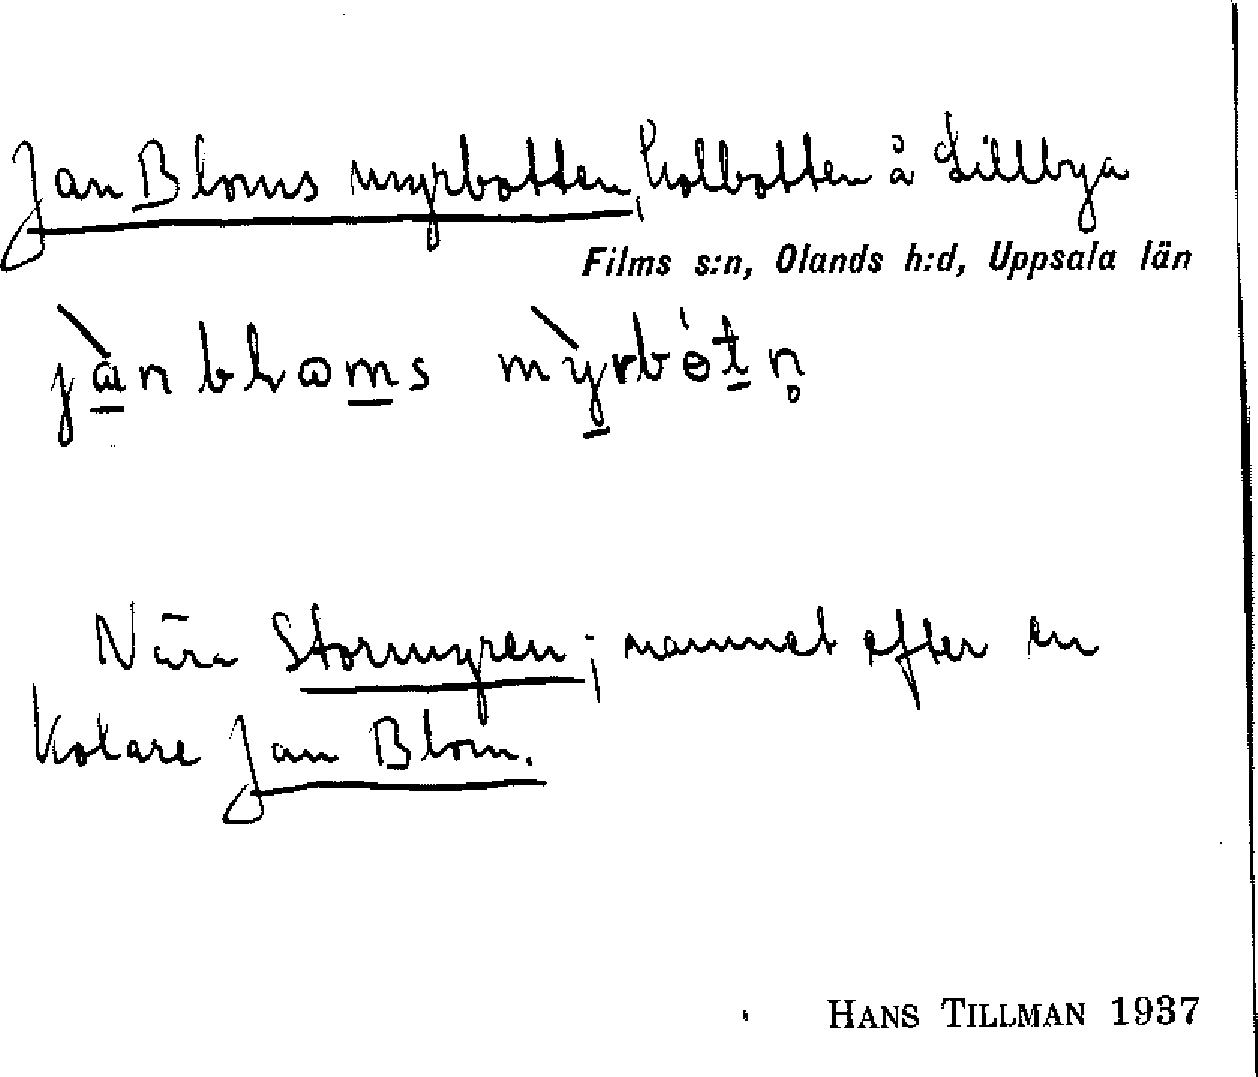 Jan Bloms myrbotten, kolbotten å Lillbya
Films s:n, Olands h:d, Uppsala län
Nära Stormyren; namnet efter en
kolare Jan Blom.
HANS TILLMAN 1937